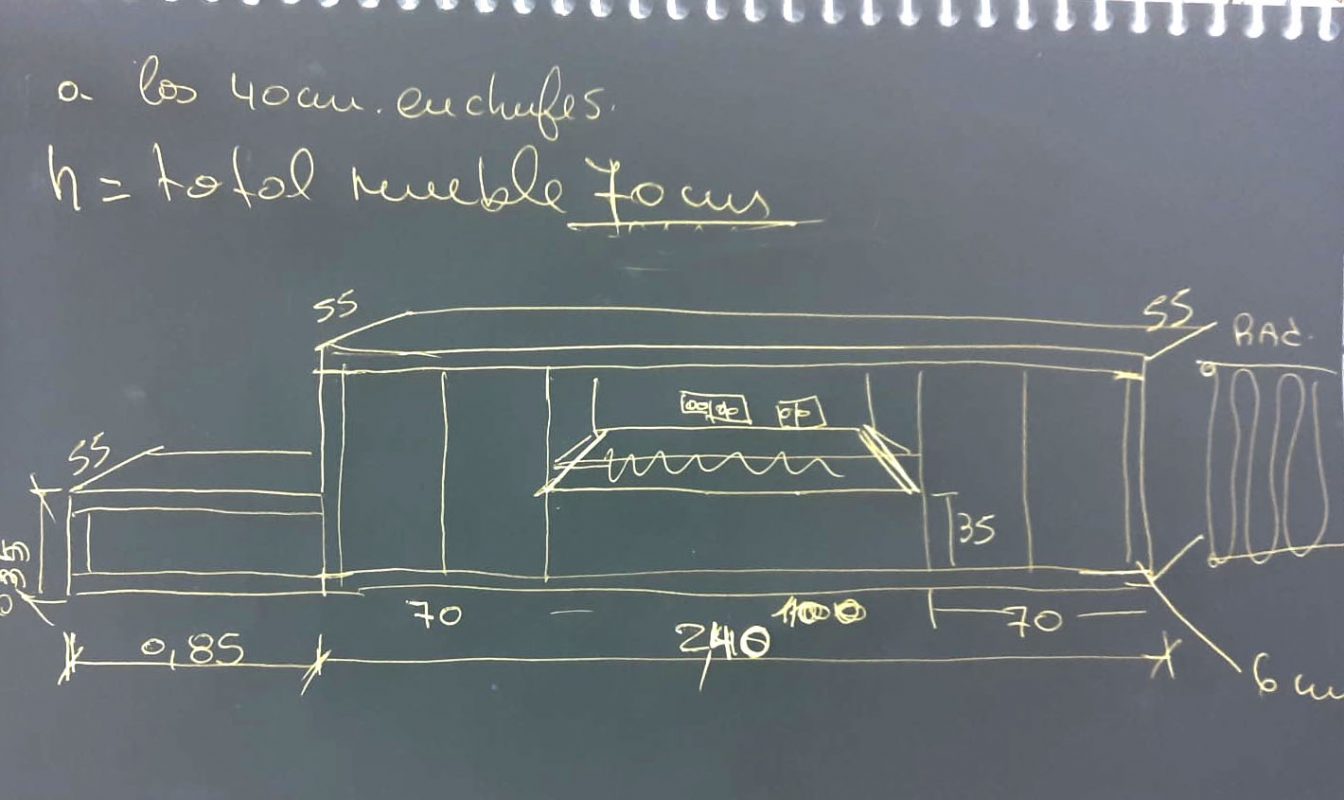 a los 40cm. enchufes.
h = total mueble 70 cms
55
55
RAD.
55
35
70
100
70
240
0,85
6 cm